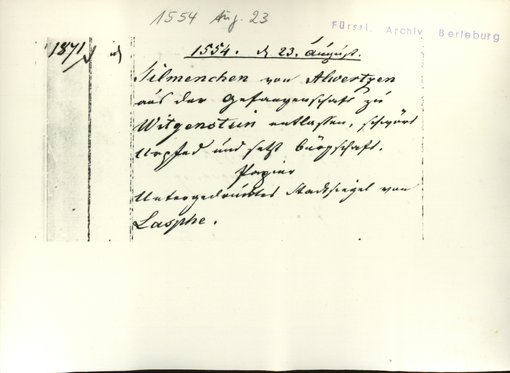 1554 Aug. 23
Fürstl. Archiv Berleburg
1871
1554. d 23. August.
Tilmenchen von Alwertzen
aus der Gefangenschaft zu
Witgenstein entlassen, schwört
Urpfed und setzt bürgschaft.
Papier
Untergedrucktes Stadtsiegel von
Lasphe.